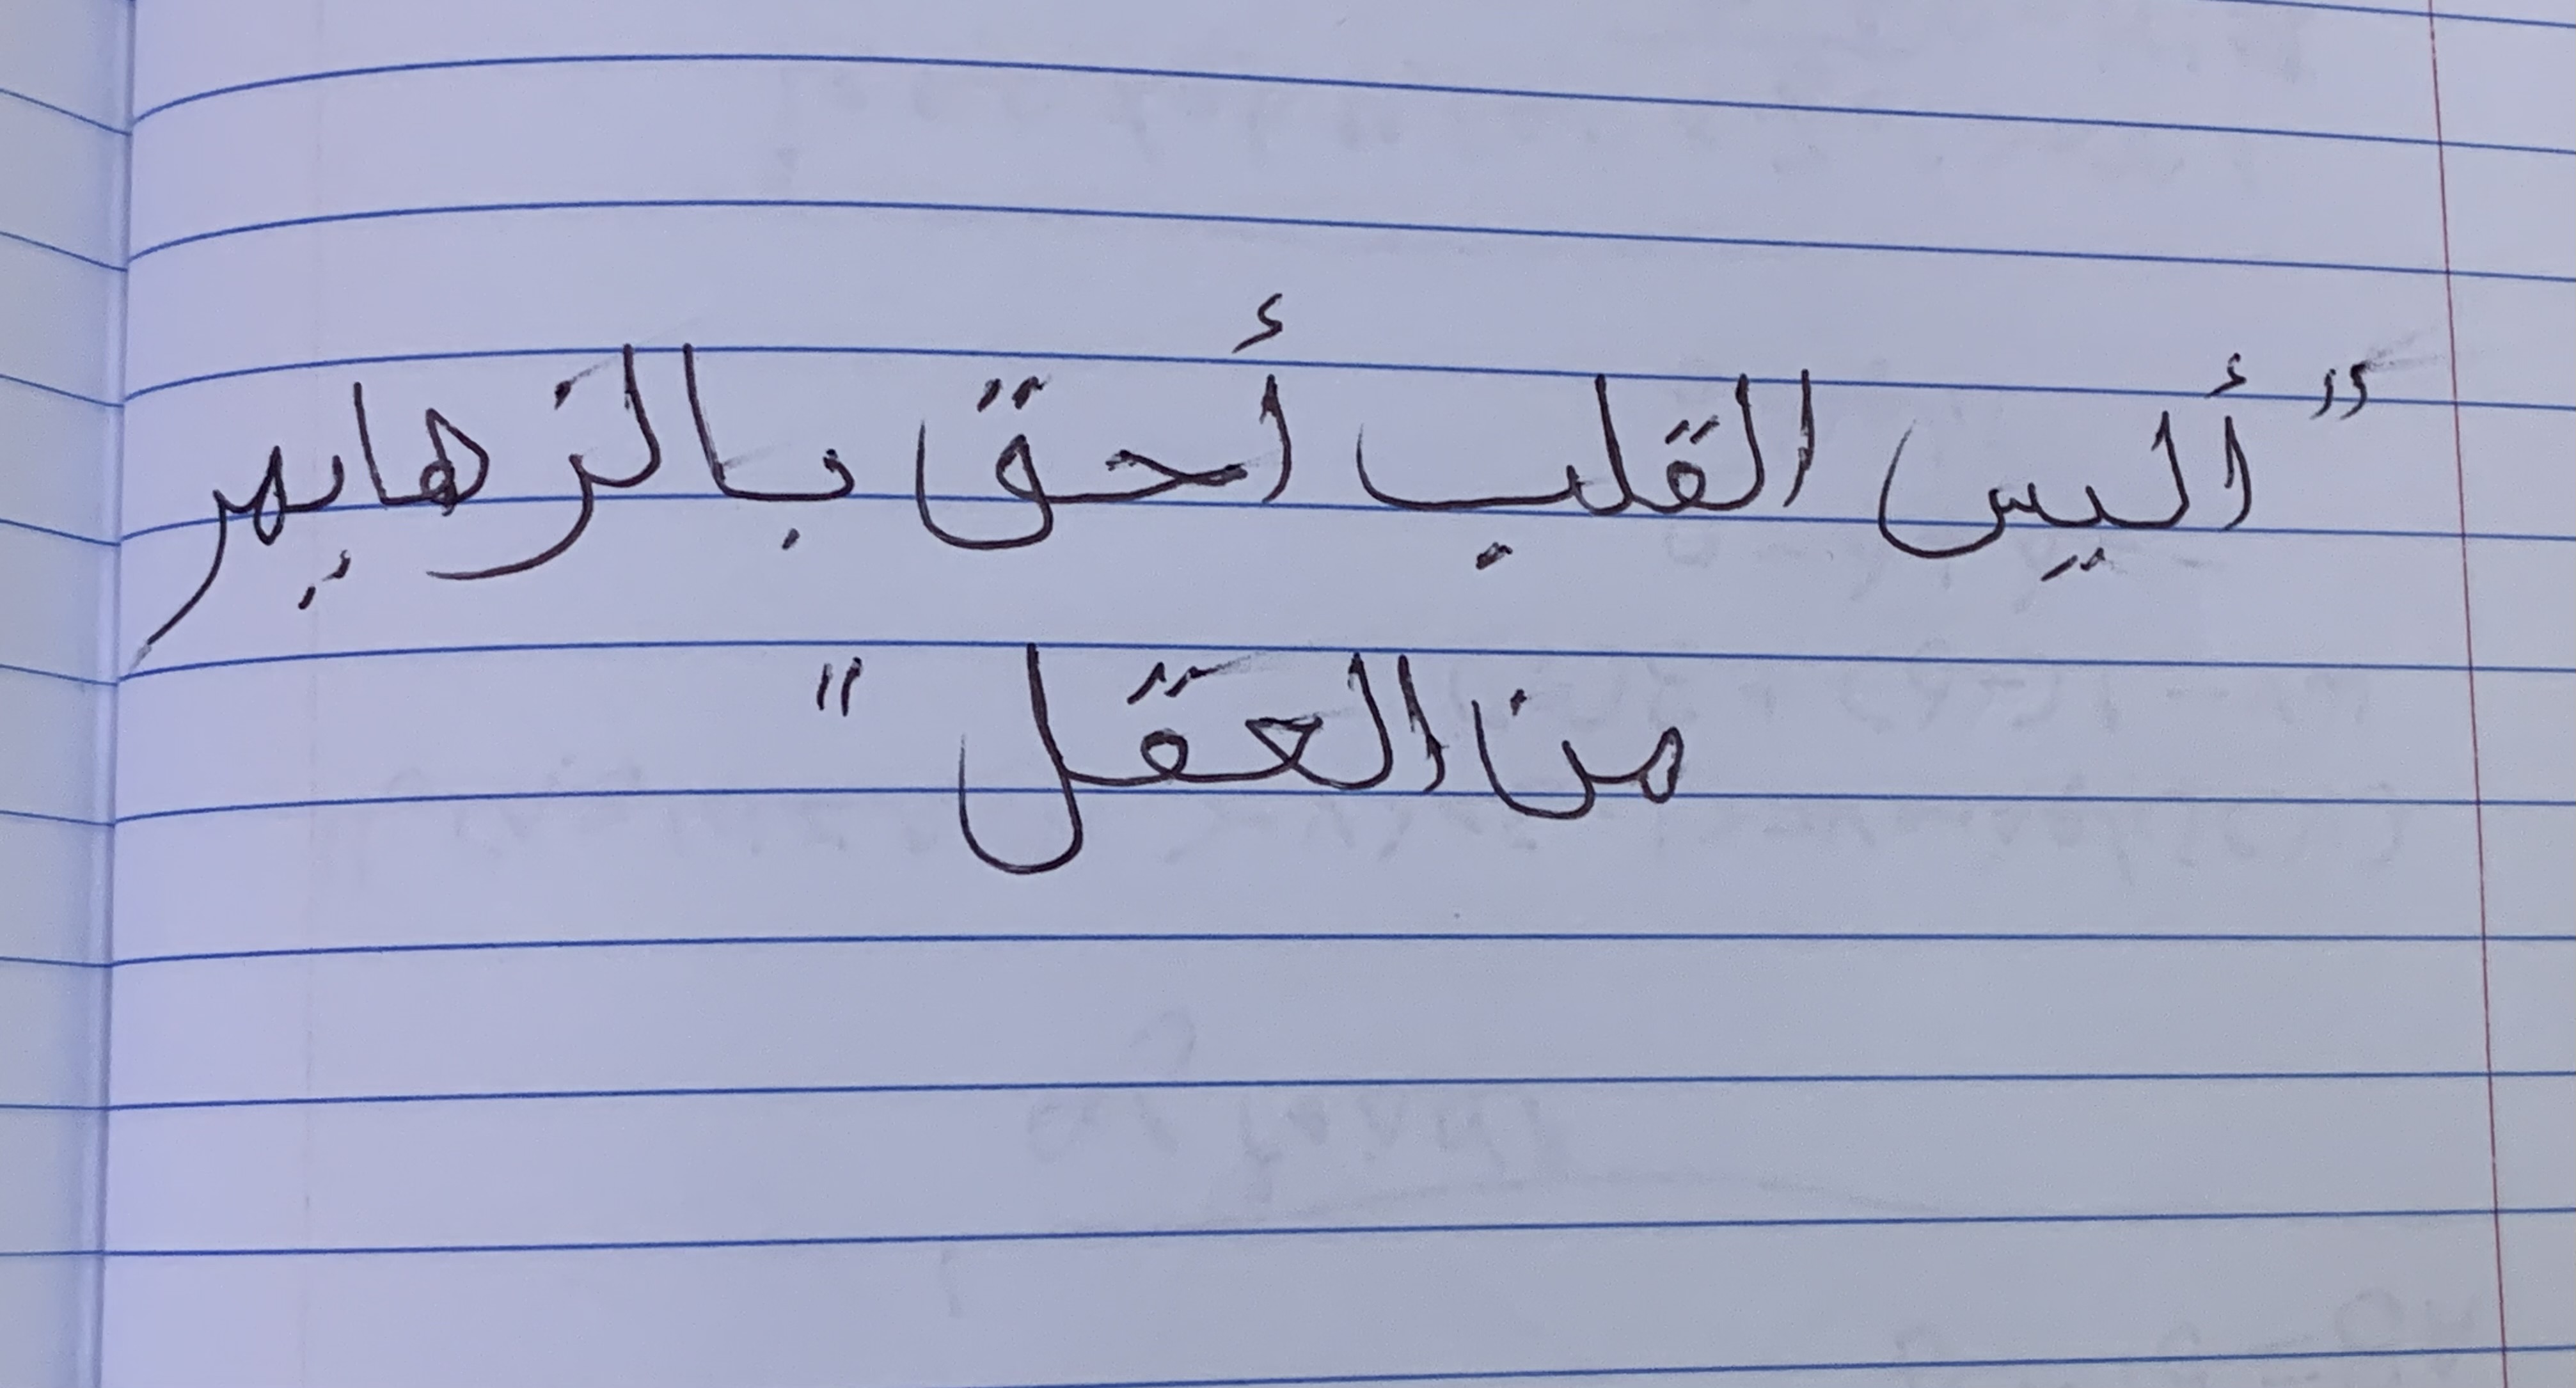 "أليس القلب أحق بالزهايمر
من العقل"